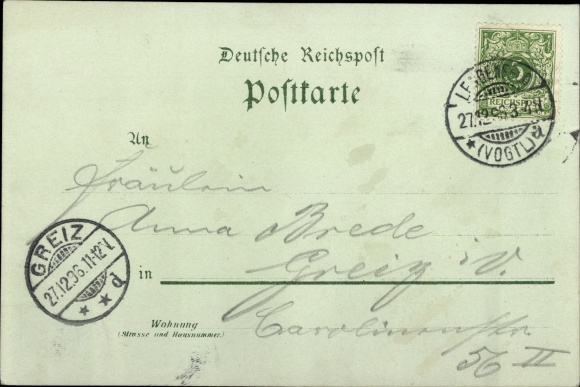 Deutsche Reichspost
Postkarte
5
REICHSPOST
27.12.96.3-4.N.
(VOGTL) a
An
Fräulein
Anna Brede
GREIZ
27.12.96.11-12V.
d
in Greiz i/V.
Wohnung
(Strasse und Hausnummer)
Carolinenstr.
56 II